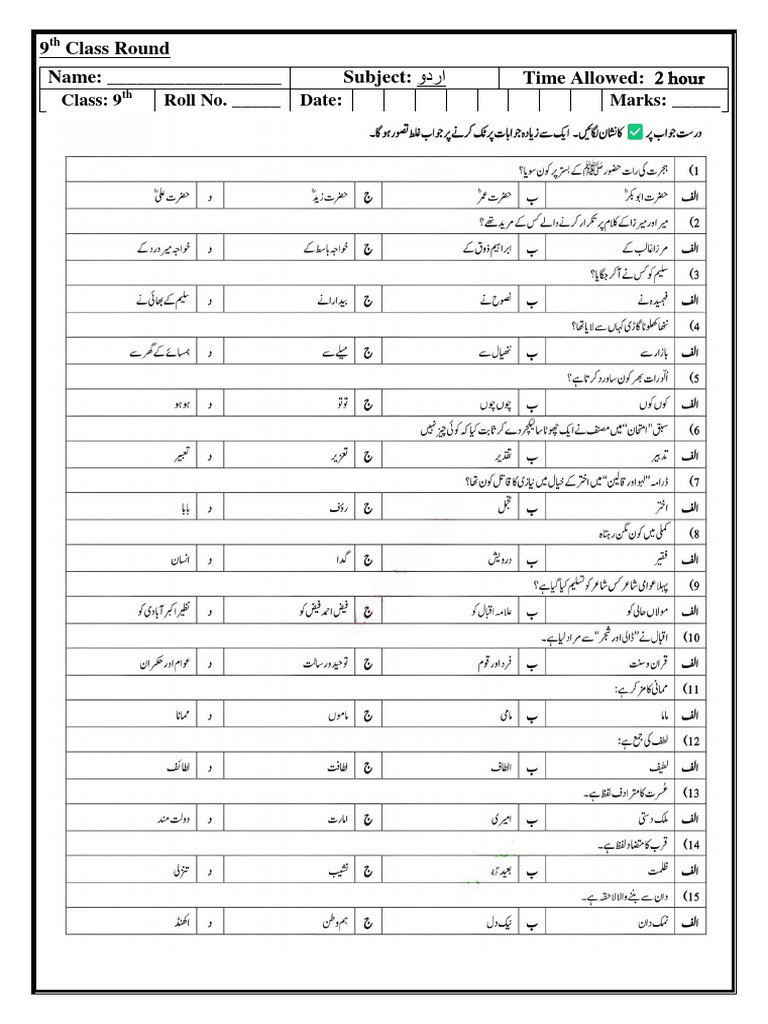 9th Class Round
Name: __________________ Subject: اردو Time Allowed: 2 hour
Class: 9th Roll No. _____ Date: Marks: _____
درست جواب پر ✅ کا نشان لگائیں۔ ایک سے زیادہ جوابات پر ٹک کرنے پر جواب غلط تصور ہو گا۔
(1 ہجرت کی رات حضور ﷺ کے بستر پر کون سویا؟
الف حضرت ابو بکرؓ ب حضرت عمرؓ ج حضرت زیدؓ د حضرت علیؓ
(2 میر اور میرزا کے کلام پر تکرار کرنے والے کس کے مرید تھے؟
الف مرزا غالب کے ب ابراہیم ذوق کے ج خواجہ باسط کے د خواجہ میر درد کے
(3 سلیم کو کس نے آ کر جگایا؟
الف فہمیدہ نے ب نصوح نے ج بیدارا نے د سلیم کے بھائی نے
(4 ننھا کھلونا گاڑی کہاں سے لایا تھا؟
الف بازار سے ب ننھیال سے ج میلے سے د ہمسائے کے گھر سے
(5 اُلّو رات بھر کون سا ورد کرتا ہے؟
الف کوں کوں ب چوں چوں ج تو تو د ہو ہو
(6 سبق "امتحان" میں مصنف نے ایک چھوٹا سا لیکچر دے کر ثابت کیا کہ کوئی چیز نہیں
الف تدبیر ب تقدیر ج تعزیر د تعبیر
(7 ڈرامہ "لہو اور قالین" میں اختر کے خیال میں نیازی کا قاتل کون تھا؟
الف اختر ب تجمل ج رؤف د بابا
(8 کملی میں کون مگن رہتاہ
الف فقیر ب درویش ج گدا د انسان
(9 پہلا عوامی شاعر کس شاعر کو تسلیم کیا گیا ہے؟
الف مولاں حالی کو ب علامہ اقبال کو ج فیض احمد فیض کو د نظیر اکبر آبادی کو
(10 اقبال نے "ڈالی اور شجر" سے مراد لیا ہے۔
الف قران و سنت ب فرد اور قوم ج توحید و رسالت د عوام اور حکمران
(11 ممانی کا مزکر ہے:
الف ماما ب مامی ج ماموں د ممانا
(12 لطف کی جمع ہے:
الف لطیف ب الطاف ج لطافت د لطائف
(13 عُسرت کا مترادف لفظ ہے۔
الف ملک دستی ب امیری ج امارت د دولت مند
(14 قرب کا متضاد لفظ ہے۔
الف ظلمت ب بعید ج نشیب د تنزلی
(15 دان سے بننے والا لاحقہ ہے۔
الف نمک دان ب نیک دل ج ہم وطن د اکھنڈ